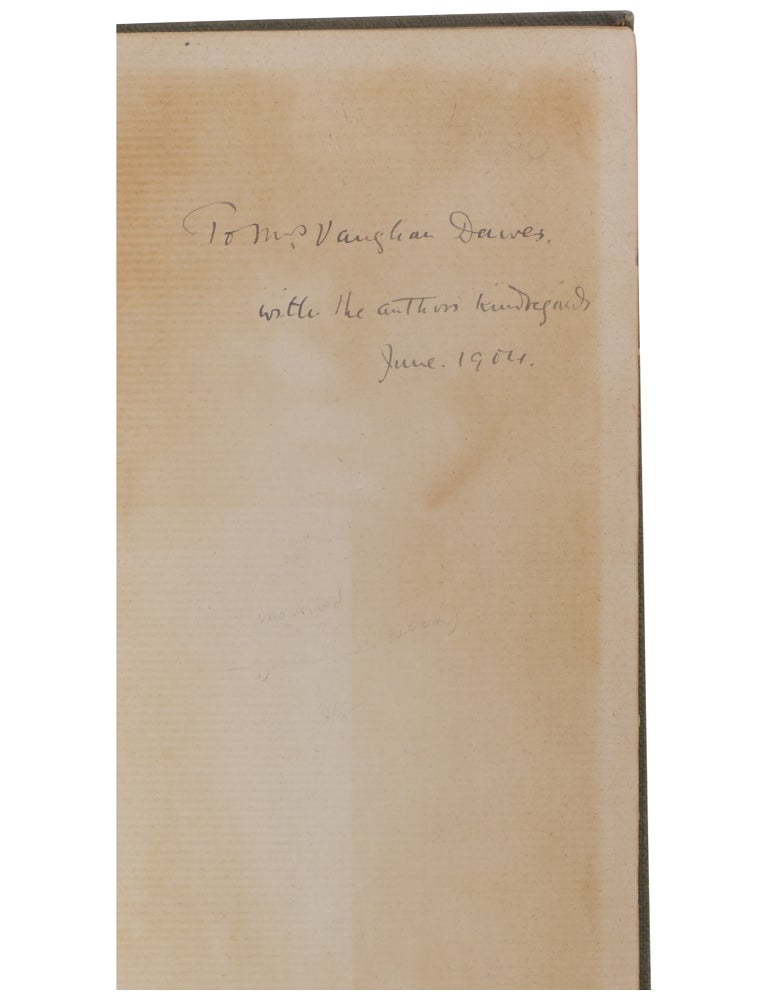 To Mrs Vaughan Dawes.
with the authors kind regards
June. 1904.